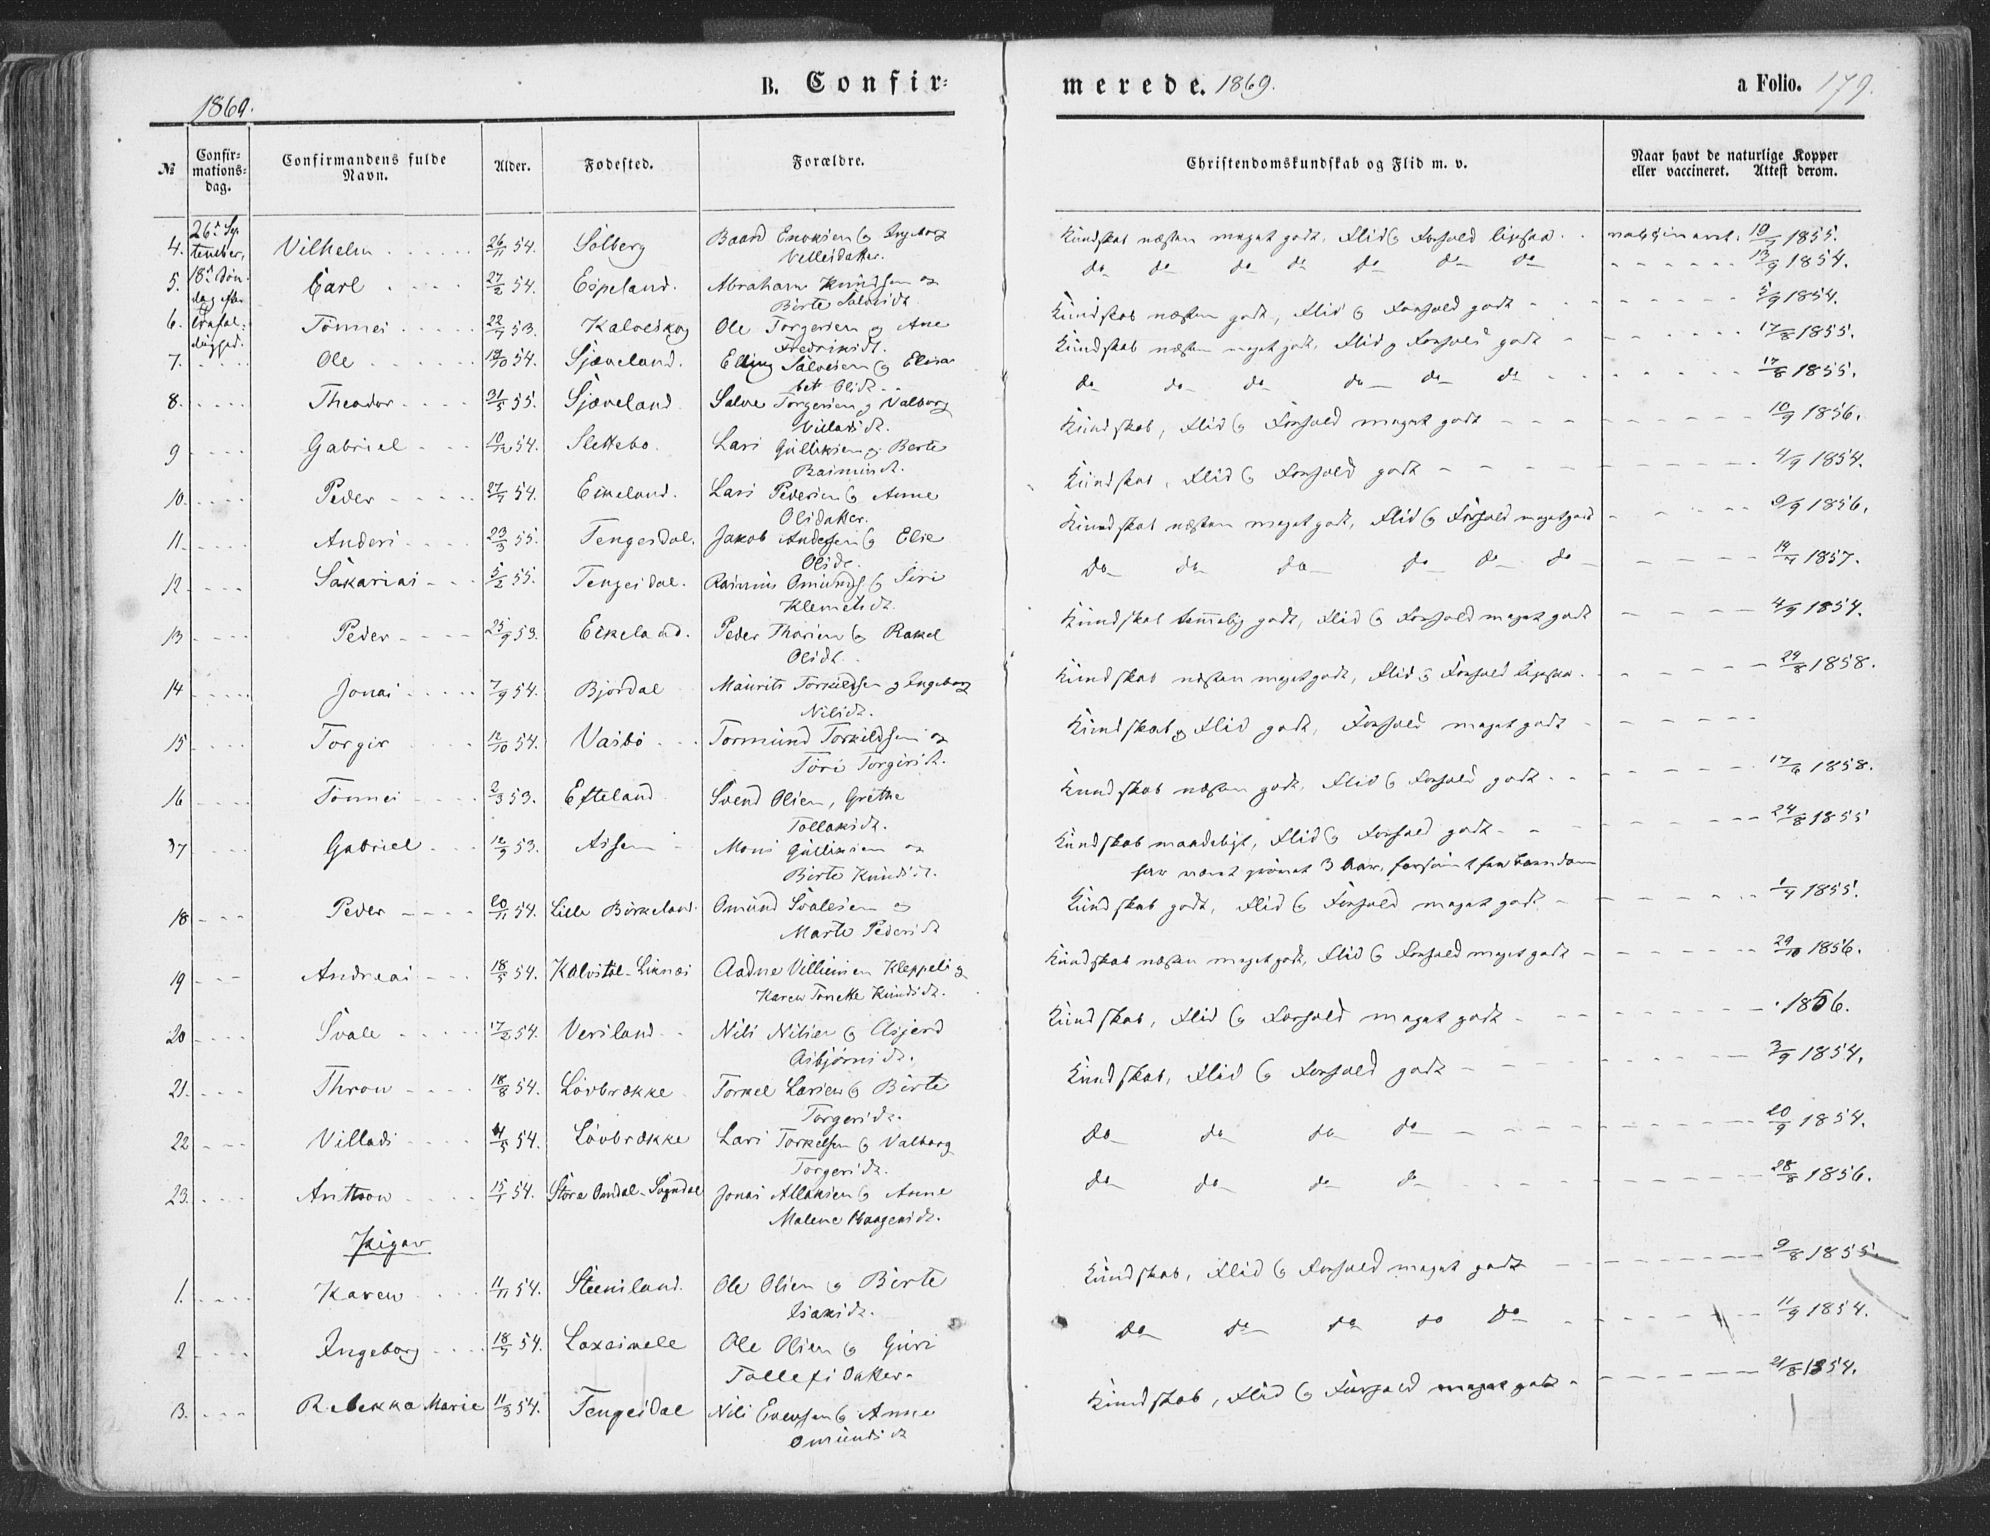 B. Confir-
merede. 1869.
a Folio. 179.
1869.
№ Confir-mations-dag. Confirmandens fulde Navn. Alder. Fødested. Forældre. Christendomskundskab og Flid m. v. Naar havt de naturlige Kopper eller vaccineret. Attest derom.
26 Sep
tember,
18 Søn
dag efter
4. Vilhelm 26/11 54. Solberg Baard Enoksen og Ingeborg Kundskab næsten meget godt, Flid og Forhold ligesaa 10/7 1855.
Villeisdatter.
5. Carl 27/2 54. Espeland. Abraham Knudsen og do do do do do do do 13/9 1854.
Birte
6. Tønnes 22/7 53. Kalveskog Ole Torgersen og Ane Kundskab næsten godt, Flid og Forhold godt 5/9 1854.
Fredriksdt.
7. Ole 10/10 54. Sjæveland. Elling Salvesen og Elisa Kundskab næsten meget godt, Flid og Forhold godt 17/8 1855.
bet Olsdt.
8. Theodor 31/5 55. Sjæveland Salve Torgersen og Valborg do do do do do do 17/8 1855.
Villadsdt.
9 Gabriel 10/12 54. Slettebo. Lars Gulliksen og Berte Kundskab, Flid og Forhold meget godt 10/9 1856.
Rasmusdt.
10. Peder 27/7 54. Eikeland. Lars Pedersen og Anne Kundskab, Flid og Forhold godt 4/9 1854.
Olsdatter.
11. Anders 23/3 55. Tengesdal. Jakob Andersen og Elie Kundskab næsten meget godt, Flid og Forhold meget godt 9/9 1856.
Olsdt.
12 Sakarias 5/2 55. Tengesdal. Rasmus Omunds. og Siri do do do do do do 14/7 1857.
Klemetsdt.
13 Peder 25/9 53. Eikeland. Peder Thorsen og Rakel Kundskab temmelig godt, Flid og Forhold meget godt 4/9 1854.
Olsdt.
14 Jonas 7/9 54. Bjordal Maurits Torkildsen og Engeborg Kundskab næsten meget godt, Flid og Forhold ligesaa 24/8 1858.
Nilsdt.
15 Torger 12/10 54. Vasbø Tormund Torkildsen og Kundskab og Flid godt, Forhold meget godt
Tori Torgersdt.
16 Tønnes 2/3 53. Efteland Svend Olsen, Grethe Kundskab næsten godt, Flid og Forhold godt 17/6 1858.
Tollaksdt.
17 Gabriel 12/9 53. Aasen Mons Gulliksen og Kundskab maadeligt, Flid og Forhold godt 24/8 1855
Berte Knudsdt. har været prøvet 3 Aar, forsømt fra Barndom
18 Peder 20/11 54. Lille Birkeland Omund Svalesen og Kundskab godt, Flid og Forhold meget godt 1/7 1855.
Marte Pedersdt
19 Andreas 18/5 54. Kalvstøl-Liknes Aadne Villumsen Kleppeli og Kundskab næsten meget godt, Flid og Forhold meget godt 29/10 1856.
Karen Tonette Knudsdt.
20 Svale 17/2 54. Versland Nils Nilsen og Asjerd Kundskab, Flid og Forhold meget godt 1856.
Asbjørnsdt.
21. Thron 18/8 54. Løvbrække Torkel Larsen og Birte Kundskab, Flid og Forhold godt 3/9 1854.
Torgersdt.
22 Villads 4/5 54. Løvbrække Lars Torkelsen og Valborg do do do do 20/9 1854.
Torgersdt.
23. Anthon 15/1 54. Store Omdal-Sogndal Jonas Allaksen og Anne do do do do 28/8 1856.
Malene Haagensdt.
Piger
1. Karen 11/11 54. Steensland. Ole Olsen og Birte Kundskab, Flid og Forhold meget godt 9/8 1855.
Isaksdt.
2 Ingeborg 18/7 54. Laxesvele Ole Olsen og Guri do do do do do 11/9 1854.
Tollefsdatter.
3. Rebekka Marie 11/3 54. Tengesdal Nils Evensen og Anne Kundskab, Flid og Forhold meget godt 21/8 1854.
Omundsdt